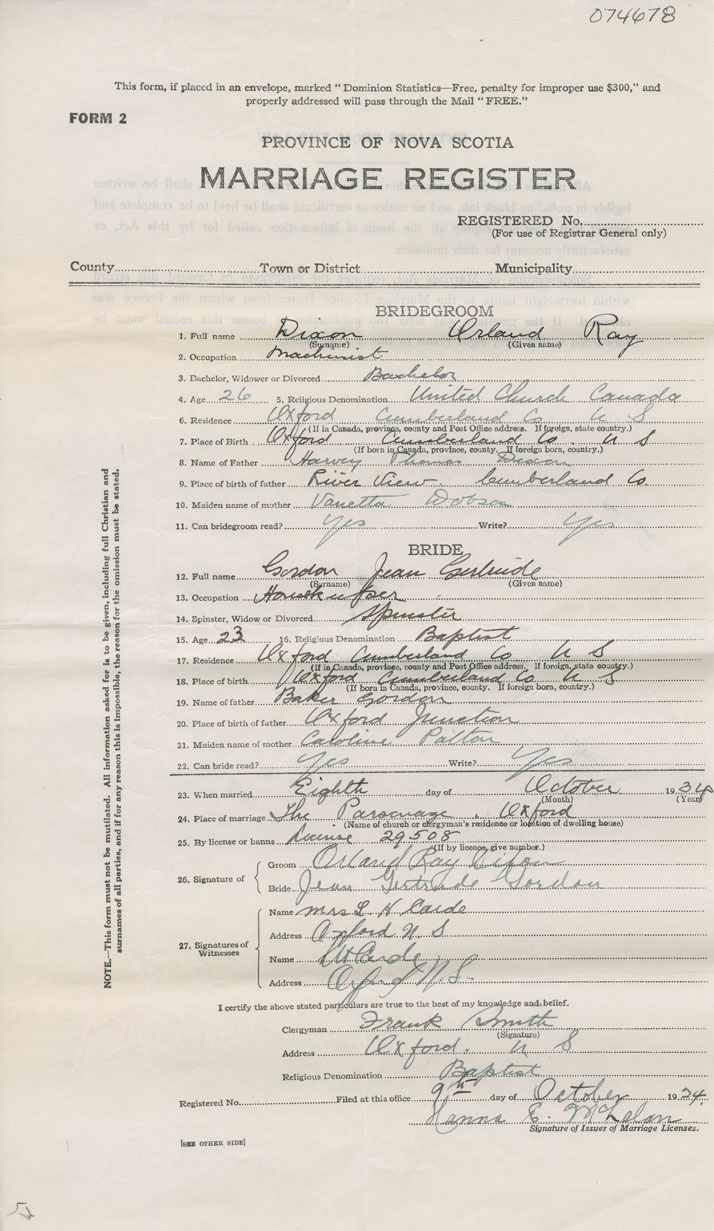 074678
This form, if placed in an envelope, marked "Dominion Statistics—Free, penalty for improper use $300," and
properly addressed will pass through the Mail "FREE."
FORM 2
PROVINCE OF NOVA SCOTIA
MARRIAGE REGISTER
REGISTERED No.
(For use of Registrar General only)
County Town or District Municipality
BRIDEGROOM
1. Full name Dixon Orland Ray
(Surname) (Given name)
2. Occupation Machinist
3. Bachelor, Widower or Divorced Bachelor
4. Age 26 5. Religious Denomination United Church Canada
6. Residence Oxford Cumberland Co N S
(If in Canada, province, county and Post Office address. If foreign, state country.)
7. Place of Birth Oxford Cumberland Co. N S
(If born in Canada, province, county. If foreign born, country.)
8. Name of Father Harvey Thomas Dixon
9. Place of birth of father River View. Cumberland Co.
10. Maiden name of mother Vanetta Dobson
11. Can bridegroom read? Yes Write? Yes
BRIDE
12. Full name Gordon Jean Gertrude
(Surname) (Given name)
13. Occupation Housekeeper
14. Spinster, Widow or Divorced Spinster
15. Age 23 16. Religious Denomination Baptist
17. Residence Oxford Cumberland Co N S
(If in Canada, province, county and Post Office address. If foreign, state country.)
18. Place of birth Oxford Cumberland Co N S
(If born in Canada, province, county. If foreign born, country.)
19. Name of father Baker Gordon
20. Place of birth of father Oxford Junction
21. Maiden name of mother Caroline Patton
22. Can bride read? Yes Write? Yes
23. When married Eighth day of October 1934
(Month) (Year)
24. Place of marriage The Parsonage Oxford
(Name of church or clergyman's residence or location of dwelling house)
25. By license or banns License 29508
(If by licence, give number.)
26. Signature of Groom Orland Ray Dixon
Bride Jean Gertrude Gordon
27. Signatures of Witnesses
Name Mrs L H
Address Oxford N S
Name
Address Oxford N.S.
I certify the above stated particulars are true to the best of my knowledge and belief.
Clergyman Frank Smith
(Signature)
Address Oxford. N S
Religious Denomination Baptist
Registered No. Filed at this office 9th day of October 1934
E.
Signature of Issuer of Marriage Licenses.
[SEE OTHER SIDE]
NOTE.—This form must not be mutilated. All information asked for is to be given, including full Christian and
surnames of all parties, and if for any reason this is impossible, the reason for the omission must be stated.